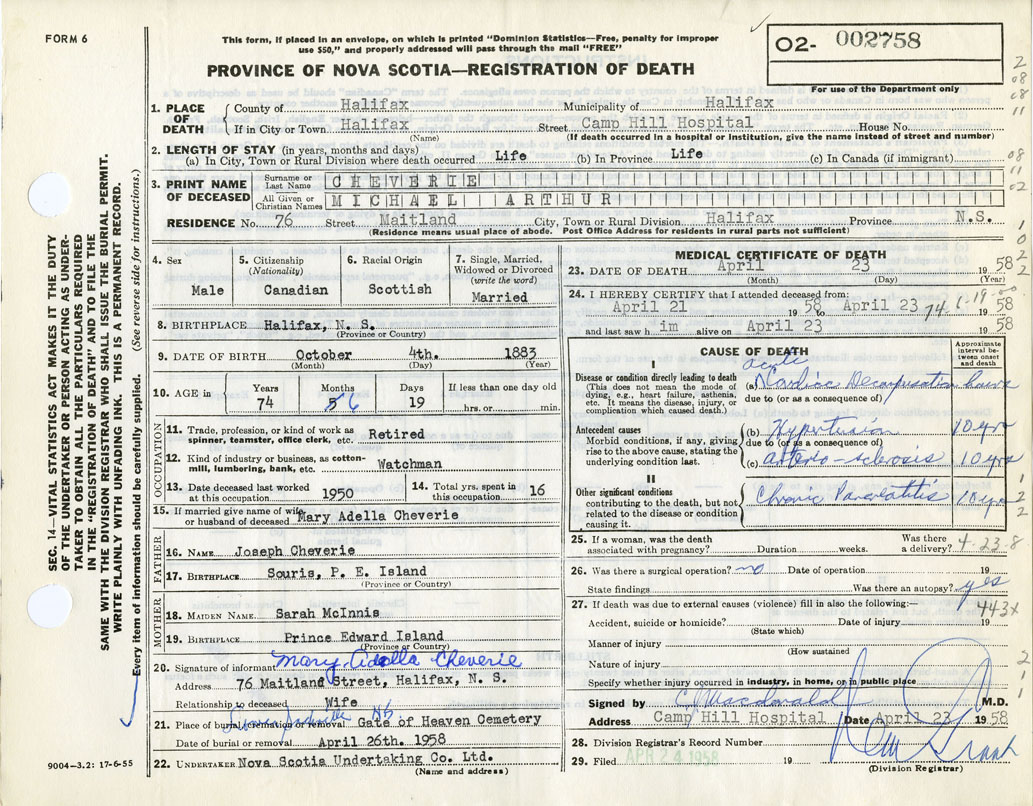 FORM 6
This form, if placed in an envelope, on which is printed "Dominion Statistics—Free, penalty for improper
use $50," and properly addressed will pass through the mail "FREE"
PROVINCE OF NOVA SCOTIA—REGISTRATION OF DEATH
02- 002758
For use of the Department only
SEC. 14—VITAL STATISTICS ACT MAKES IT THE DUTY
OF THE UNDERTAKER OR PERSON ACTING AS UNDER-
TAKER TO OBTAIN ALL THE PARTICULARS REQUIRED
IN THE "REGISTRATION OF DEATH" AND TO FILE THE
SAME WITH THE DIVISION REGISTRAR WHO SHALL ISSUE THE BURIAL PERMIT.
WRITE PLAINLY WITH UNFADING INK. THIS IS A PERMANENT RECORD.
Every item of information should be carefully supplied. (See reverse side for instructions.)
1. PLACE OF DEATH
County of Halifax Municipality of Halifax
If in City or Town Halifax Street Camp Hill Hospital House No.
(Name) (If death occurred in a hospital or institution, give the name instead of street and number)
2. LENGTH OF STAY (in years, months and days)
(a) In City, Town or Rural Division where death occurred Life (b) In Province Life (c) In Canada (if immigrant)
3. PRINT NAME OF DECEASED
Surname or Last Name CHEVERIE
All Given or Christian Names MICHAEL ARTHUR
RESIDENCE No. 76 Street Maitland City, Town or Rural Division Halifax Province N.S.
(Residence means usual place of abode. Post Office Address for residents in rural parts not sufficient)
4. Sex
Male
5. Citizenship
(Nationality)
Canadian
6. Racial Origin
Scottish
7. Single, Married,
Widowed or Divorced
(write the word)
Married
8. BIRTHPLACE Halifax, N. S.
(Province or Country)
9. DATE OF BIRTH October 4th. 1883
(Month) (Day) (Year)
10. AGE in
Years Months Days If less than one day old
74 5 6 19 hrs. or min.
OCCUPATION
11. Trade, profession, or kind of work as
spinner, teamster, office clerk, etc. Retired
12. Kind of industry or business, as cotton-
mill, lumbering, bank, etc. Watchman
13. Date deceased last worked
at this occupation 1950
14. Total yrs. spent in
this occupation 16
15. If married give name of wife
or husband of deceased Mary Adella Cheverie
FATHER
16. NAME Joseph Cheverie
17. BIRTHPLACE Souris, P. E. Island
(Province or Country)
MOTHER
18. MAIDEN NAME Sarah McInnis
19. BIRTHPLACE Prince Edward Island
(Province or Country)
20. Signature of informant Mary Adella Cheverie
Address 76 Maitland Street, Halifax, N. S.
Relationship to deceased Wife
21. Place of burial, cremation or removal Gate of Heaven Cemetery
Date of burial or removal April 26th. 1958
22. UNDERTAKER Nova Scotia Undertaking Co. Ltd.
(Name and address)
9004—3.2: 17-6-55
MEDICAL CERTIFICATE OF DEATH
23. DATE OF DEATH April 23 1958
(Month) (Day) (Year)
24. I HEREBY CERTIFY that I attended deceased from:
April 21 1958 to April 23 1958
74 6-19-00
and last saw him alive on April 23 1958
CAUSE OF DEATH
Approximate
interval be-
tween onset
and death
I
Disease or condition directly leading to death
(This does not mean the mode of
dying, e.g., heart failure, asthenia,
etc. It means the disease, injury, or
complication which caused death.)
acute
(a) Cardiac Decompensation hours
due to (or as a consequence of)
Antecedent causes
Morbid conditions, if any, giving
rise to the above cause, stating the
underlying condition last.
(b) Hypertension 10 yrs
due to (or as a consequence of)
(c) arterio-sclerosis 10 yrs
II
Other significant conditions
contributing to the death, but not
related to the disease or condition
causing it.
Chronic Pancreatitis 10 yrs
25. If a woman, was the death
associated with pregnancy? Duration weeks. Was there
a delivery?
4-23-8
26. Was there a surgical operation? no Date of operation 19
State findings Was there an autopsy? yes
27. If death was due to external causes (violence) fill in also the following:—
443X
Accident, suicide or homicide? Date of injury 19
(State which)
Manner of injury
(How sustained
Nature of injury
Specify whether injury occurred in industry, in home, or in public place
Signed by C Macdonald M.D.
Address Camp Hill Hospital Date April 23 1958
28. Division Registrar's Record Number
29. Filed APR 24 1958 19
(Division Registrar)